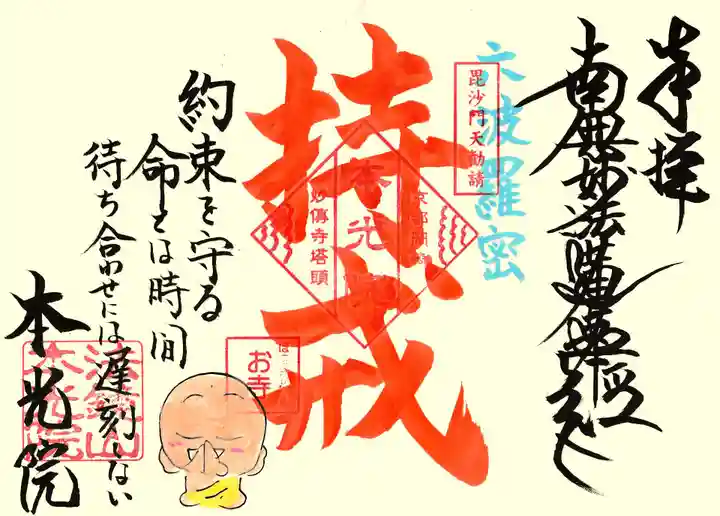 奉拝
南無妙法蓮華経
六波羅密
毘沙門天勧請
持戒
本光
妙傳寺塔頭
約束を守る
命とは時間
待ち合わせには遅刻しない
お寺
本光院